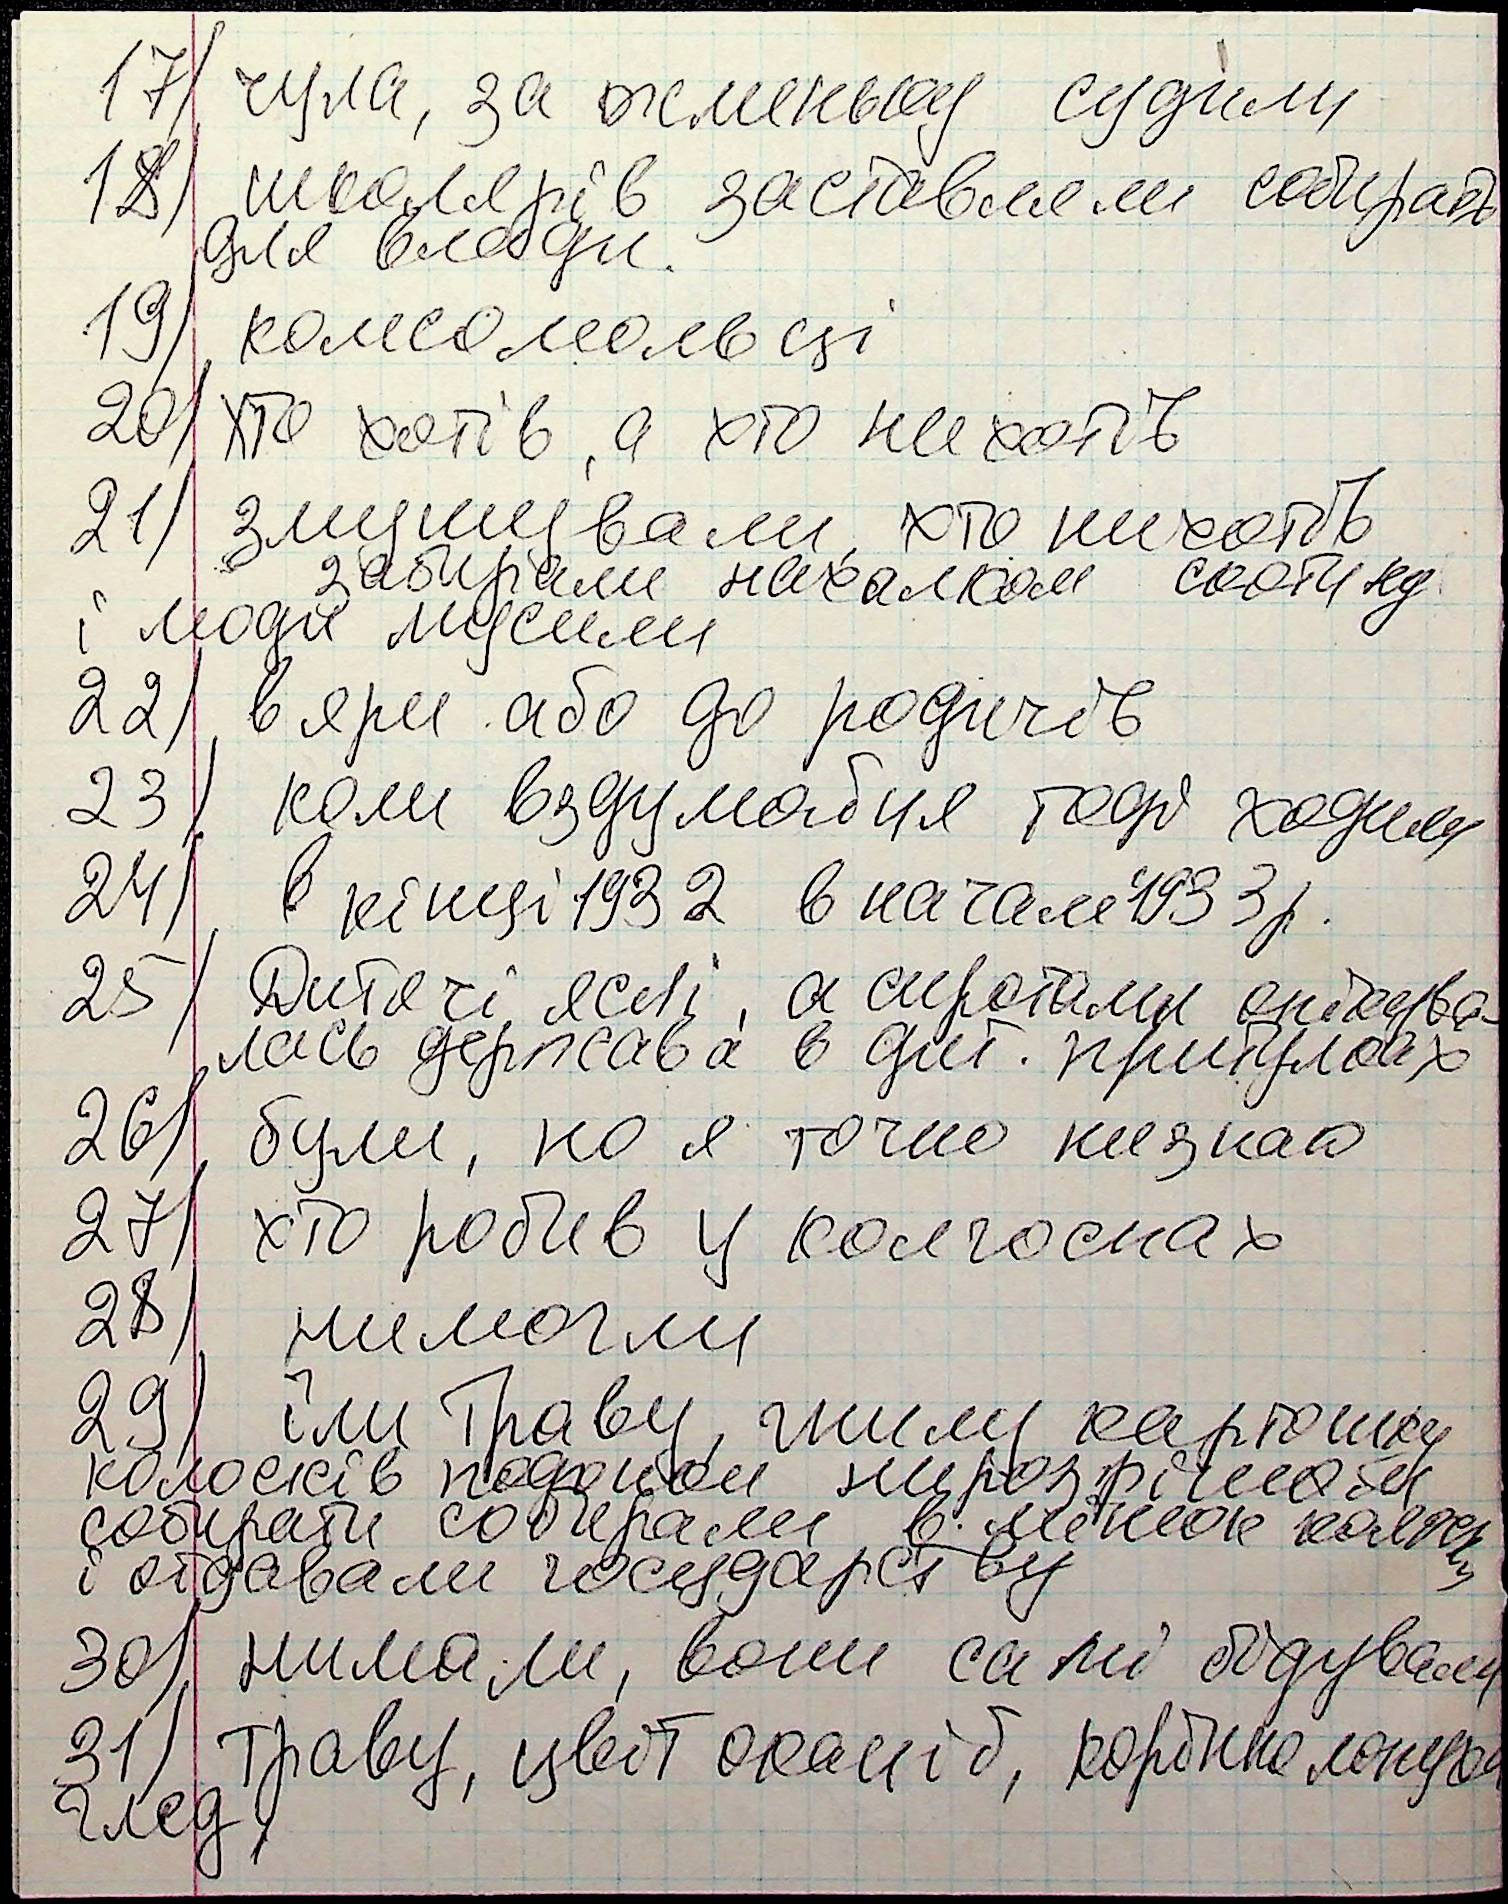 17/ чула, за жменьку судили
18/ школярів заставляли собирать
для влади.
19/ комсомольці
20/ хто хотів, а хто нихотів
21/ змушували, хто нихотів
забирали нахалком скотину
і люди мусили
22/ в яри або до родичів
23/ коли вздумається тоді ходили
24/ в кінці 1932 в началі 1933 р.
25/ Дитячі яслі, а сиротами опікува-
лась держава в дит. притулках
26/ були, но я точно низнаю
27/ хто робив у колгоспах
28/ нимогли
29/ їли траву, гнилу картошку
колосків подошом ниразрішали
собирати собирали в мішок
і отдавали государству
30/ нимали, вони самі бідували
31/ траву, цвіт окацій, корінне лопуха
глєд,